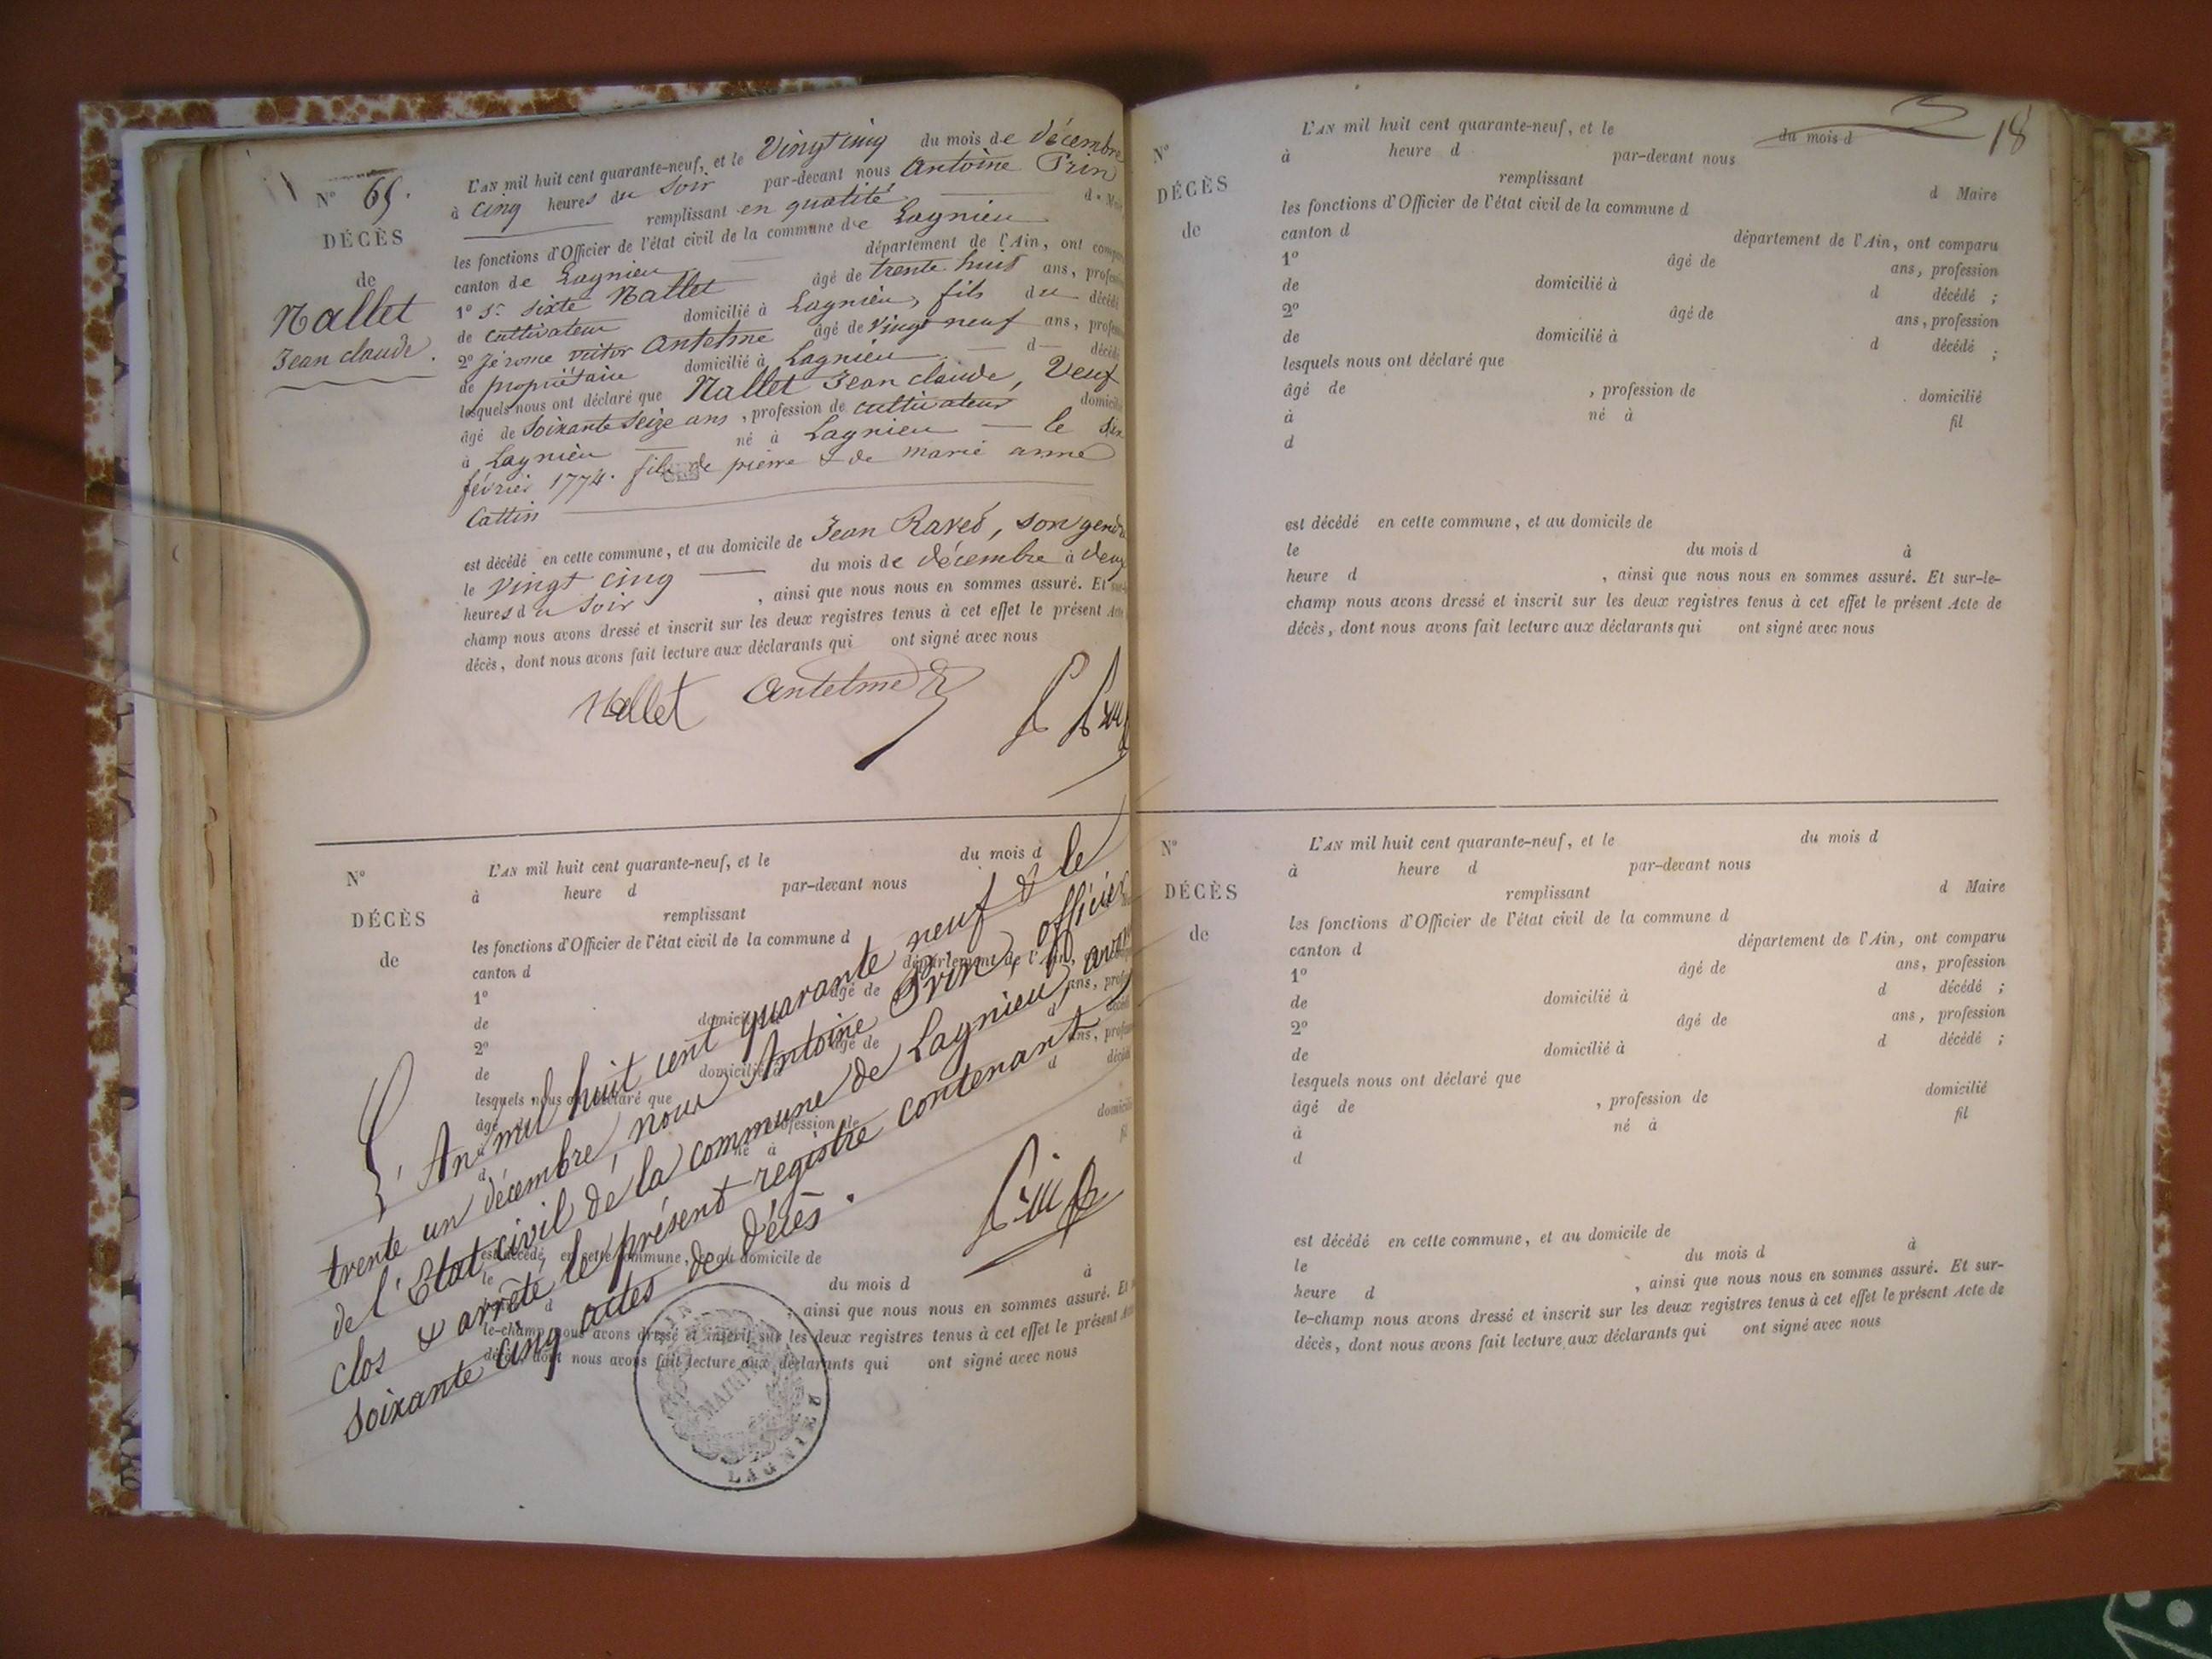 N° 65.
DÉCÈS
de
Nallet
Jean claude.
L'AN mil huit cent quarante-neuf, et le Vingt cinq du mois de décembre
à cinq heures du soir par-devant nous Antoine Prin
remplissant en qualité d
les fonctions d'Officier de l'état civil de la commune de Lagnieu
canton de Lagnieu département de l'Ain, ont
1° Sr Sixte Nallet âgé de trente huit ans,
de cultivateur domicilié à Lagnieu, fils du décédé
2° Jérome victor Antelme âgé de vingt neuf ans,
de propriétaire domicilié à Lagnieu d
lesquels nous ont déclaré que Nallet Jean claude, Veuf
âgé de Soixante Seize ans, profession de cultivateur
à Lagnieu né à Lagnieu le Six
février 1774. fils de pierre & de marie anne
Cattin
est décédé en cette commune, et au domicile de Jean Raved, son
le vingt cinq du mois de décembre à deux
heures du Soir, ainsi que nous nous en sommes assuré. Et
champ nous avons dressé et inscrit sur les deux registres tenus à cet effet le présent
décès, dont nous avons fait lecture aux déclarants qui ont signé avec nous
Nallet Antelme
N°
DÉCÈS
de
L'AN mil huit cent quarante-neuf, et le du mois d
à heure d par-devant nous
remplissant
les fonctions d'Officier de l'état civil de la commune d
canton d département de l'Ain,
1° âgé de ans,
de domicilié à d
2° âgé de ans,
de domicilié à d
lesquels nous ont déclaré que
âgé profession de
né à
d
est décédé en cette commune, et au domicile de
le du mois d à
heure d , ainsi que nous nous en sommes assuré. Et
le-champ nous avons dressé et inscrit sur les deux registres tenus à cet effet le présent
décès, dont nous avons fait lecture aux déclarants qui ont signé avec nous
L'An mil huit cent quarante neuf & le
trente un décembre, nous Antoine Prin, officier
de l'Etat civil de la commune de Lagnieu, avons
clos & arrêté le présent registre contenant
soixante cinq actes de décès.
MAIRIE
LAGNIEU
18
N°
DÉCÈS
de
L'AN mil huit cent quarante-neuf, et le du mois d
à heure d par-devant nous
remplissant d Maire
les fonctions d'Officier de l'état civil de la commune d
canton d département de l'Ain, ont comparu
1° âgé de ans, profession
de domicilié à d décédé ;
2° âgé de ans, profession
de domicilié à d décédé ;
lesquels nous ont déclaré que
âgé de , profession de domicilié
à né à fil
d
est décédé en cette commune, et au domicile de
le du mois d à
heure d , ainsi que nous nous en sommes assuré. Et sur-le-
champ nous avons dressé et inscrit sur les deux registres tenus à cet effet le présent Acte de
décès, dont nous avons fait lecture aux déclarants qui ont signé avec nous
N°
DÉCÈS
de
L'AN mil huit cent quarante-neuf, et le du mois d
à heure d par-devant nous
remplissant d Maire
les fonctions d'Officier de l'état civil de la commune d
canton d département de l'Ain, ont comparu
1° âgé de ans, profession
de domicilié à d décédé ;
2° âgé de ans, profession
de domicilié à d décédé ;
lesquels nous ont déclaré que
âgé de , profession de domicilié
à né à fil
d
est décédé en cette commune, et au domicile de
le du mois d à
heure d , ainsi que nous nous en sommes assuré. Et sur-
le-champ nous avons dressé et inscrit sur les deux registres tenus à cet effet le présent Acte de
décès, dont nous avons fait lecture aux déclarants qui ont signé avec nous